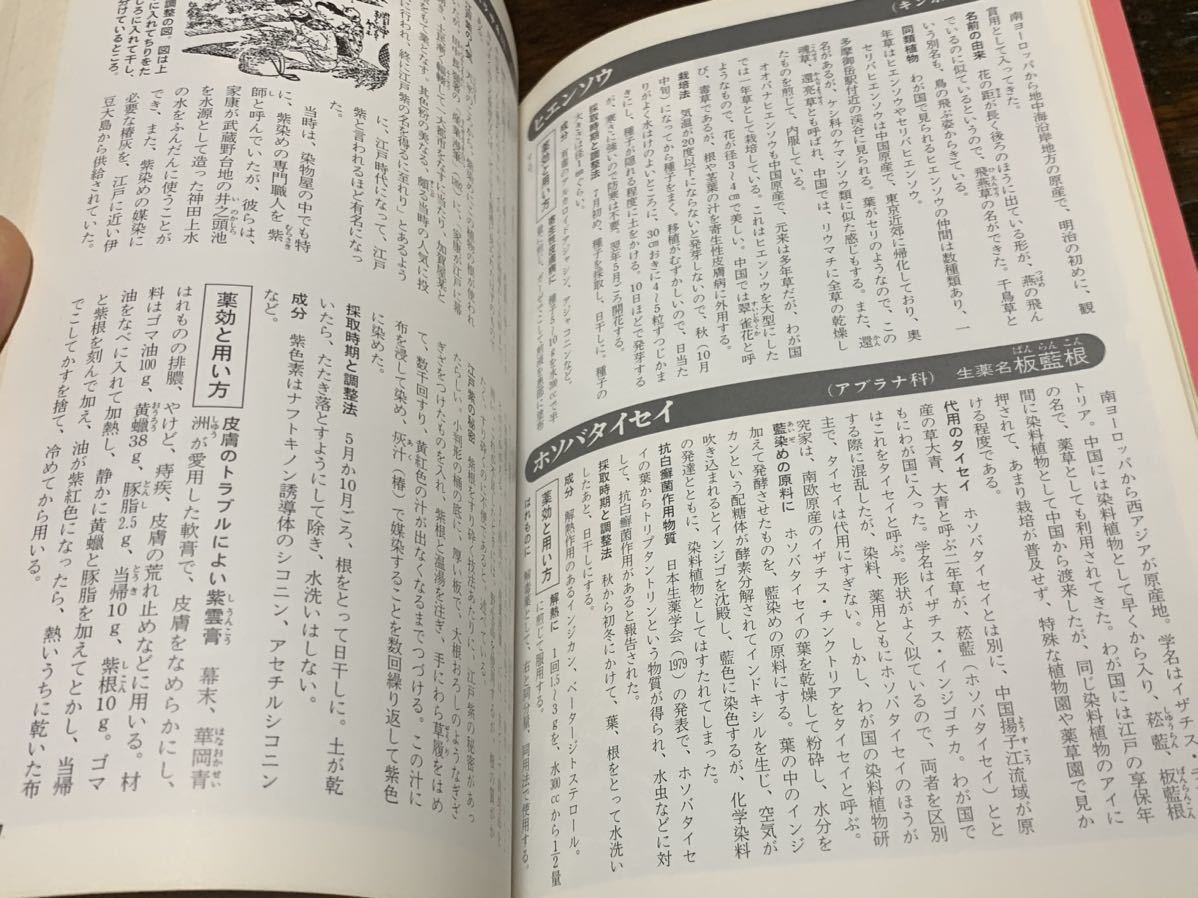 ヒエンソウ
（キンポ
南ヨーロッパから地中海沿岸地方の原産で、明治の初めに、観
賞用として入ってきた。
名前の由来　花の距が長く後ろのほうに出ている形が、燕の飛ん
でいるのに似ているというので、飛燕草の名ができた。千鳥草と
いう別名も、鳥の飛ぶ姿からきている。
同類植物　わが国で見られるヒエンソウの仲間は数種類あり、一
年草はヒエンソウやセリバヒエンソウ。
セリバヒエンソウは中国原産で、東京近郊に帰化しており、奥
多摩御岳駅付近の渓谷に見られる。葉がセリのようなので、この
名があるが、ケシ科のケマンソウ類に似た感じもする。また、還
魂草、還亮草とも呼ばれ、中国では、リウマチに全草の乾燥し
たものを煎じて、内服している。
オオバナヒエンソウも中国原産で、元来は多年草だが、わが国
では一年草として栽培している。これはヒエンソウを大型にした
ようなもので、花が径3〜4㎝で美しい。中国では翠雀花と呼
び、毒草であるが、根や茎葉の汁を寄生性皮膚病に外用する。
栽培法　気温20度以下にならないと発芽しないので、秋（10月
中旬）になってから種子をまく。移植がむずかしいので、日当た
りがよく水はけのよいところに、30㎝おきに4〜5粒ずつじかま
きにし、種子が隠れる程度に土をかける。10日ほどで発芽する
が、寒さに強いので防寒は不要、翌年5月ごろ開花する。
採取時期と調整法　7月初め、種子を採取し、日干しに。種子の
大きさは径1㎜ぐらい。
薬効と用い方
ホソバタイセイ
（アブラナ科）
生薬名板藍根
ばんらんこん
南ヨーロッパから西アジアが原産地。学名はイザチス・チ
トリア。中国には染料植物として早くから入り、菘藍、板藍根
の名で、薬草としても利用されてきた。わが国には江戸の享保年
間に染料植物として中国から渡来したが、同じ染料植物のアイに
押されて、あまり栽培が普及せず、特殊な植物園や薬草園で見か
ける程度である。
代用のタイセイ　ホソバタイセイとは別に、中国揚子江流域が原
産の草大青、大青と呼ぶ二年草が、菘藍（ホソバタイセイ）とと
もにわが国に入った。学名はイザチス・インジゴチカ。わが国で
はこれをタイセイと呼ぶ。形状がよく似ているので、両者を区別
する際に混乱したが、染料、薬用ともにホソバタイセイのほうが
主で、タイセイは代用にすぎない。しかし、わが国の染料植物研
究家は、南欧原産のイザチス・チンクトリアをタイセイと呼ぶ。
藍染めの原料に　ホソバタイセイの葉を乾燥して粉砕し、水分を
加えて発酵させたものを、藍染めの原料にする。葉の中のインジ
カンという配糖体が酵素分解されてインドキシルを生じ、空気が
吹き込まれるとインジゴを沈殿し、藍色に染色するが、化学染料
の発達とともに、染料植物としてはすたれてしまった。
抗白癬菌作用物質　日本生薬学会（1979）の発表で、ホソバタイセ
イの葉からトリプタントリンという物質が得られ、水虫などに対
して、抗白癬菌作用があると報告された。
採取時期と調整法　秋から初冬にかけて、葉、根をとって水洗い
したあと、日干しにする。
成分　解熱作用のあるインジカン、ベータージトステロール。
薬効と用い方　解熱に　1回1.5〜3gを、水300㏄から1/2量
に煎じて服用する。
はれものに　解毒薬として、右と同分量、同用法で使用する。
調整の図。図は上
当時は、染物屋の中でも特
に、紫染めの専門職人を紫
師と呼んでいたが、彼らは、
家康が武蔵野台地の井之頭池
を水源として造った神田上水
の水をふんだんに使うことが
でき、また、紫染めの媒染に
必要な椿灰を、江戸に近い伊
豆大島から供給されていた。
に、江戸時代になって、江戸
紫と言われるほど有名になっ
た。
江戸紫の秘密
て、数千回すり、黄紅色の汁が出なくなるまでつづける。この汁に
布を浸して染め、灰汁（椿）で媒染することを数回繰り返して紫色
に染めた。
採取時期と調整法　5月か10月ごろ、根をとって日干しに。土が乾
いたら、たたき落とすようにして除き、水洗いはしない。
成分　紫色素はナフトキノン誘導体のシコニン、アセチルシコニン
など。
薬効と用い方
皮膚のトラブルによい紫雲膏　幕末、華岡青
洲が愛用した軟膏で、皮膚をなめらかにし、
はれものの排膿、やけど、痔疾、皮膚の荒れ止めなどに用いる。材
料はゴマ油100g、黄蠟38g、豚脂2.5g、当帰10g、紫根10g。ゴマ
油をなべに入れて加熱し、静かに黄蠟と豚脂を加えてとかし、当帰
と紫根を刻んで加え、油が紫紅色になったら、熱いうちに乾いた布
でこしてかすを捨て、冷めてから用いる。